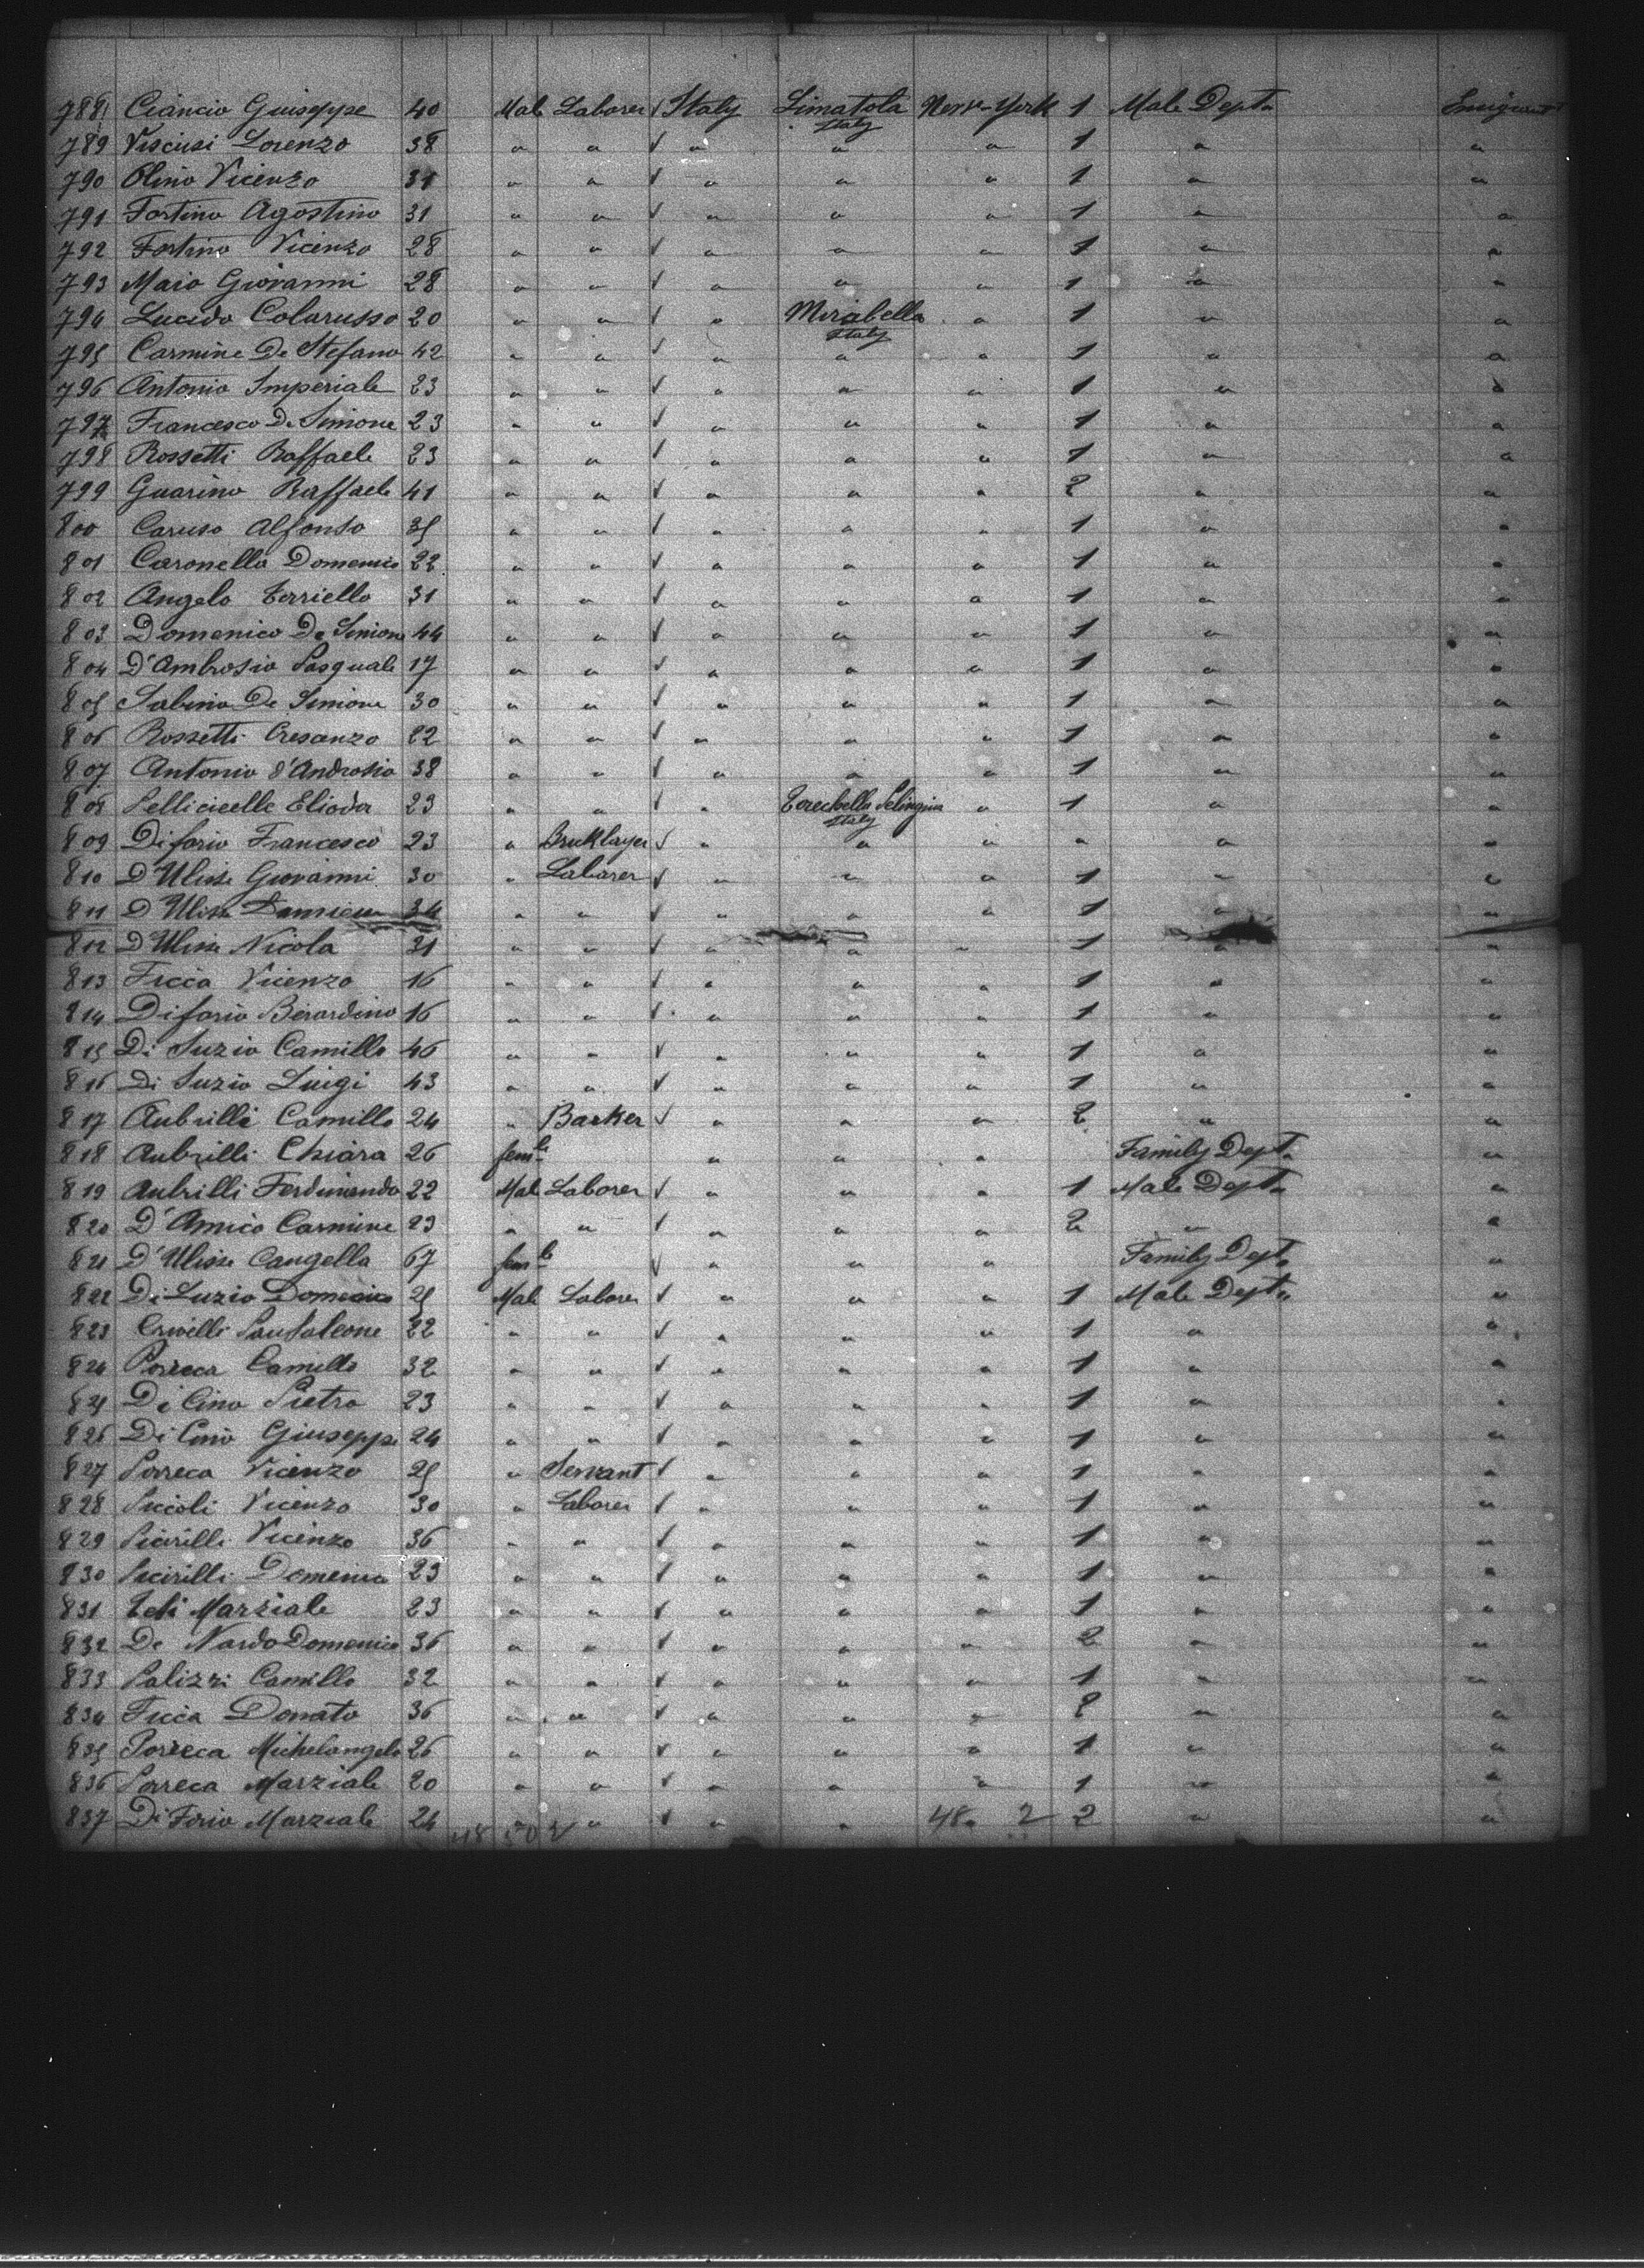 788 Ciancio Guiseppe 40 Mal Laborer √ Italy Limatola Italy New-York 1 Male Dept. Emigrant
789 Viscusi Lorenzo 38 " " √ " " " 1 " "
790 Olino Vicenzo 31 " " √ " " " 1 " "
791 Fortino Agostino 31 " " √ " " " 1 " "
792 Fortino Vicenzo 28 " " √ " " " 1 " "
793 Maio Giovanni 28 " " √ " " " 1 " "
794 Lucido Colarusso 20 " " √ " Mirabella Italy " 1 " "
795 Carmine De Stefano 42 " " √ " " " 1 " "
796 Antonio Imperiale 23 " " √ " " " 1 " "
797 Francesco De Simone 23 " " √ " " " 1 " "
798 Rossetti Raffaele 23 " " √ " " " 1 " "
799 Guarino Raffaele 41 " " √ " " " 2 " "
800 Caruso Alfonso 35 " " √ " " " 1 " "
801 Caronella Domenico 22 " " √ " " " 1 " "
802 Angelo Torriello 31 " " √ " " " 1 " "
803 Domenico De Simone 44 " " √ " " " 1 " "
804 D'Ambrosio Pasquale 17 " " √ " " " 1 " "
805 Sabino De Simone 30 " " √ " " " 1 " "
806 Rossetti Cresanzo 22 " " √ " " " 1 " "
807 Antonio d'Androsio 38 " " √ " " " 1 " "
808 Pellicicelle Eliodor 23 " " √ " Italy " 1 " "
809 Difario Francesco 23 " Bricklayer √ " " " " " "
810 D'Ulisse Giovanni 30 " Laborer √ " " " 1 " "
811 D'Ulisse 34 " " √ " " " 1 " "
812 D'Ulisse Nicola 31 " " √ " " " 1 " "
813 Ficca Vicenzo 16 " " √ " " " 1 " "
814 Difario Berardino 16 " " √ " " " 1 " "
815 Di Suzio Camillo 46 " " √ " " " 1 " "
816 Di Suzio Luigi 43 " " √ " " " 1 " "
817 Aubrilli Camillo 24 " Barker √ " " " 2 " "
818 Aubrilli Chiara 26 femle " " " Family Dept. "
819 Aubrilli Ferdinando 22 Mal Laborer √ " " " 1 Male Dept. "
820 D'Amico Carmine 23 " " √ " " " 2 " "
821 D'Ulisse Cangella 67 femle √ " " " Family Dept. "
822 Di Luzio Domenico 25 Mal Laborer √ " " " 1 Male Dept. "
823 Crivelli Pantaleone 22 " " √ " " " 1 " "
824 Porreca Camillo 32 " " √ " " " 1 " "
825 Di Cino Pietro 23 " " √ " " " 1 " "
826 Di Cino Giuseppe 24 " " √ " " " 1 " "
827 Porreca Vicenzo 25 " Servant √ " " " 1 " "
828 Piccoli Vicenzo 30 " Laborer √ " " " 1 " "
829 Picirilli Vicenzo 36 " " √ " " " 1 " "
830 Picirilli Domenico 23 " " √ " " " 1 " "
831 Teti Marziale 23 " " √ " " " 1 " "
832 De Nardo Domenico 36 " " √ " " " 2 " "
833 Palizzi Camillo 32 " " √ " " " 1 " "
834 Ficca Donato 36 " " √ " " " 2 " "
835 Porreca Michelangelo 26 " " √ " " " 1 " "
836 Porreca Marziale 20 " " √ " " " 1 " "
837 Di Forio Marziale 24 48 " √ " " 48 2 2 " "